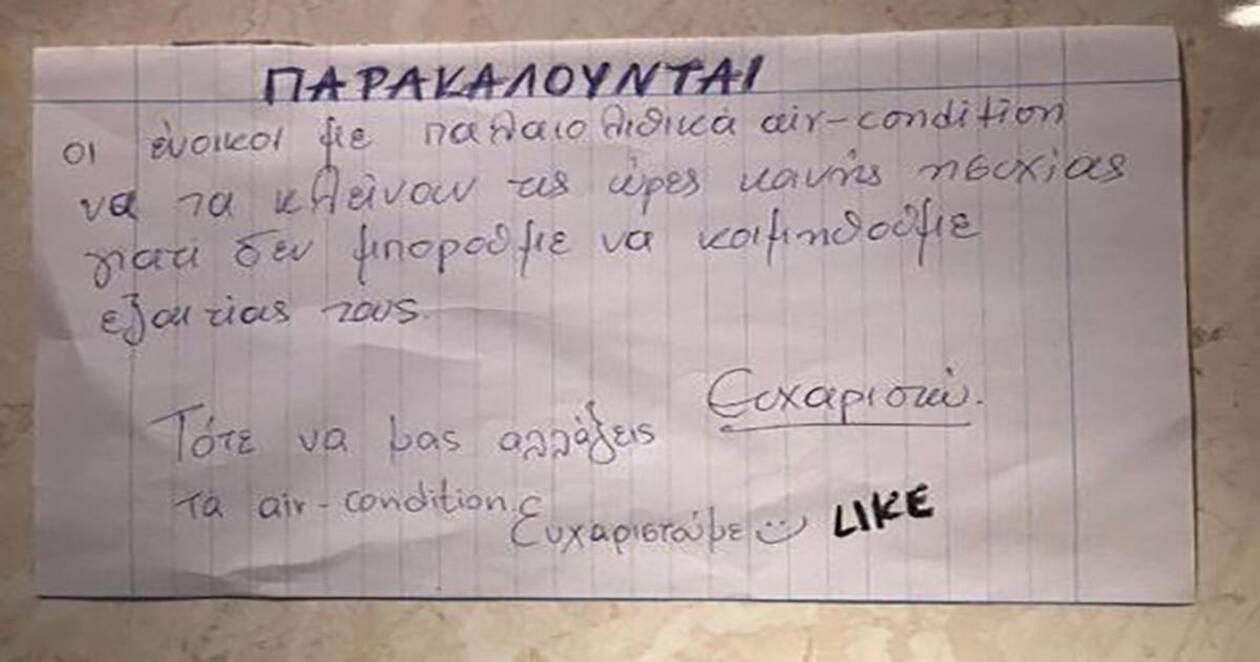 ΠΑΡΑΚΑΛΟΥΝΤΑΙ
οι ένοικοι με παλαιολιθικά air-condition
να τα κλείνουν τις ώρες κοινής ησυχίας
γιατί δεν μπορούμε να κοιμηθούμε
εξαιτίας τους.
Ευχαριστώ.
Τότε να μας αλλάξεις
τα air-condition.
Ευχαριστούμε LIKE